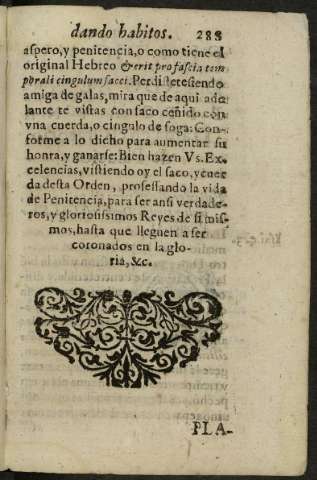 dando habitos. 288
aspero, y penitencia, o como tiene el
original Hebreo & erit pro fascia tem
porali cingulum sacci. Perdiste siendo
amiga de galas, mira que de aqui ade
lante te vistas con saco ceñido con
vna cuerda, o cingulo de soga: Con-
forme a lo dicho para aumentar su
honra, y ganarse: Bien hazen Vs. Ex-
celencias, vistiendo oy el saco, y cuer
da desta Orden, professando la vida
de Penitencia, para ser ansi verdade-
ros, y gloriosissimos Reyes de si mis-
mos, hasta que lleguen a ser
coronados en la glo-
ria, &c.
PLA-